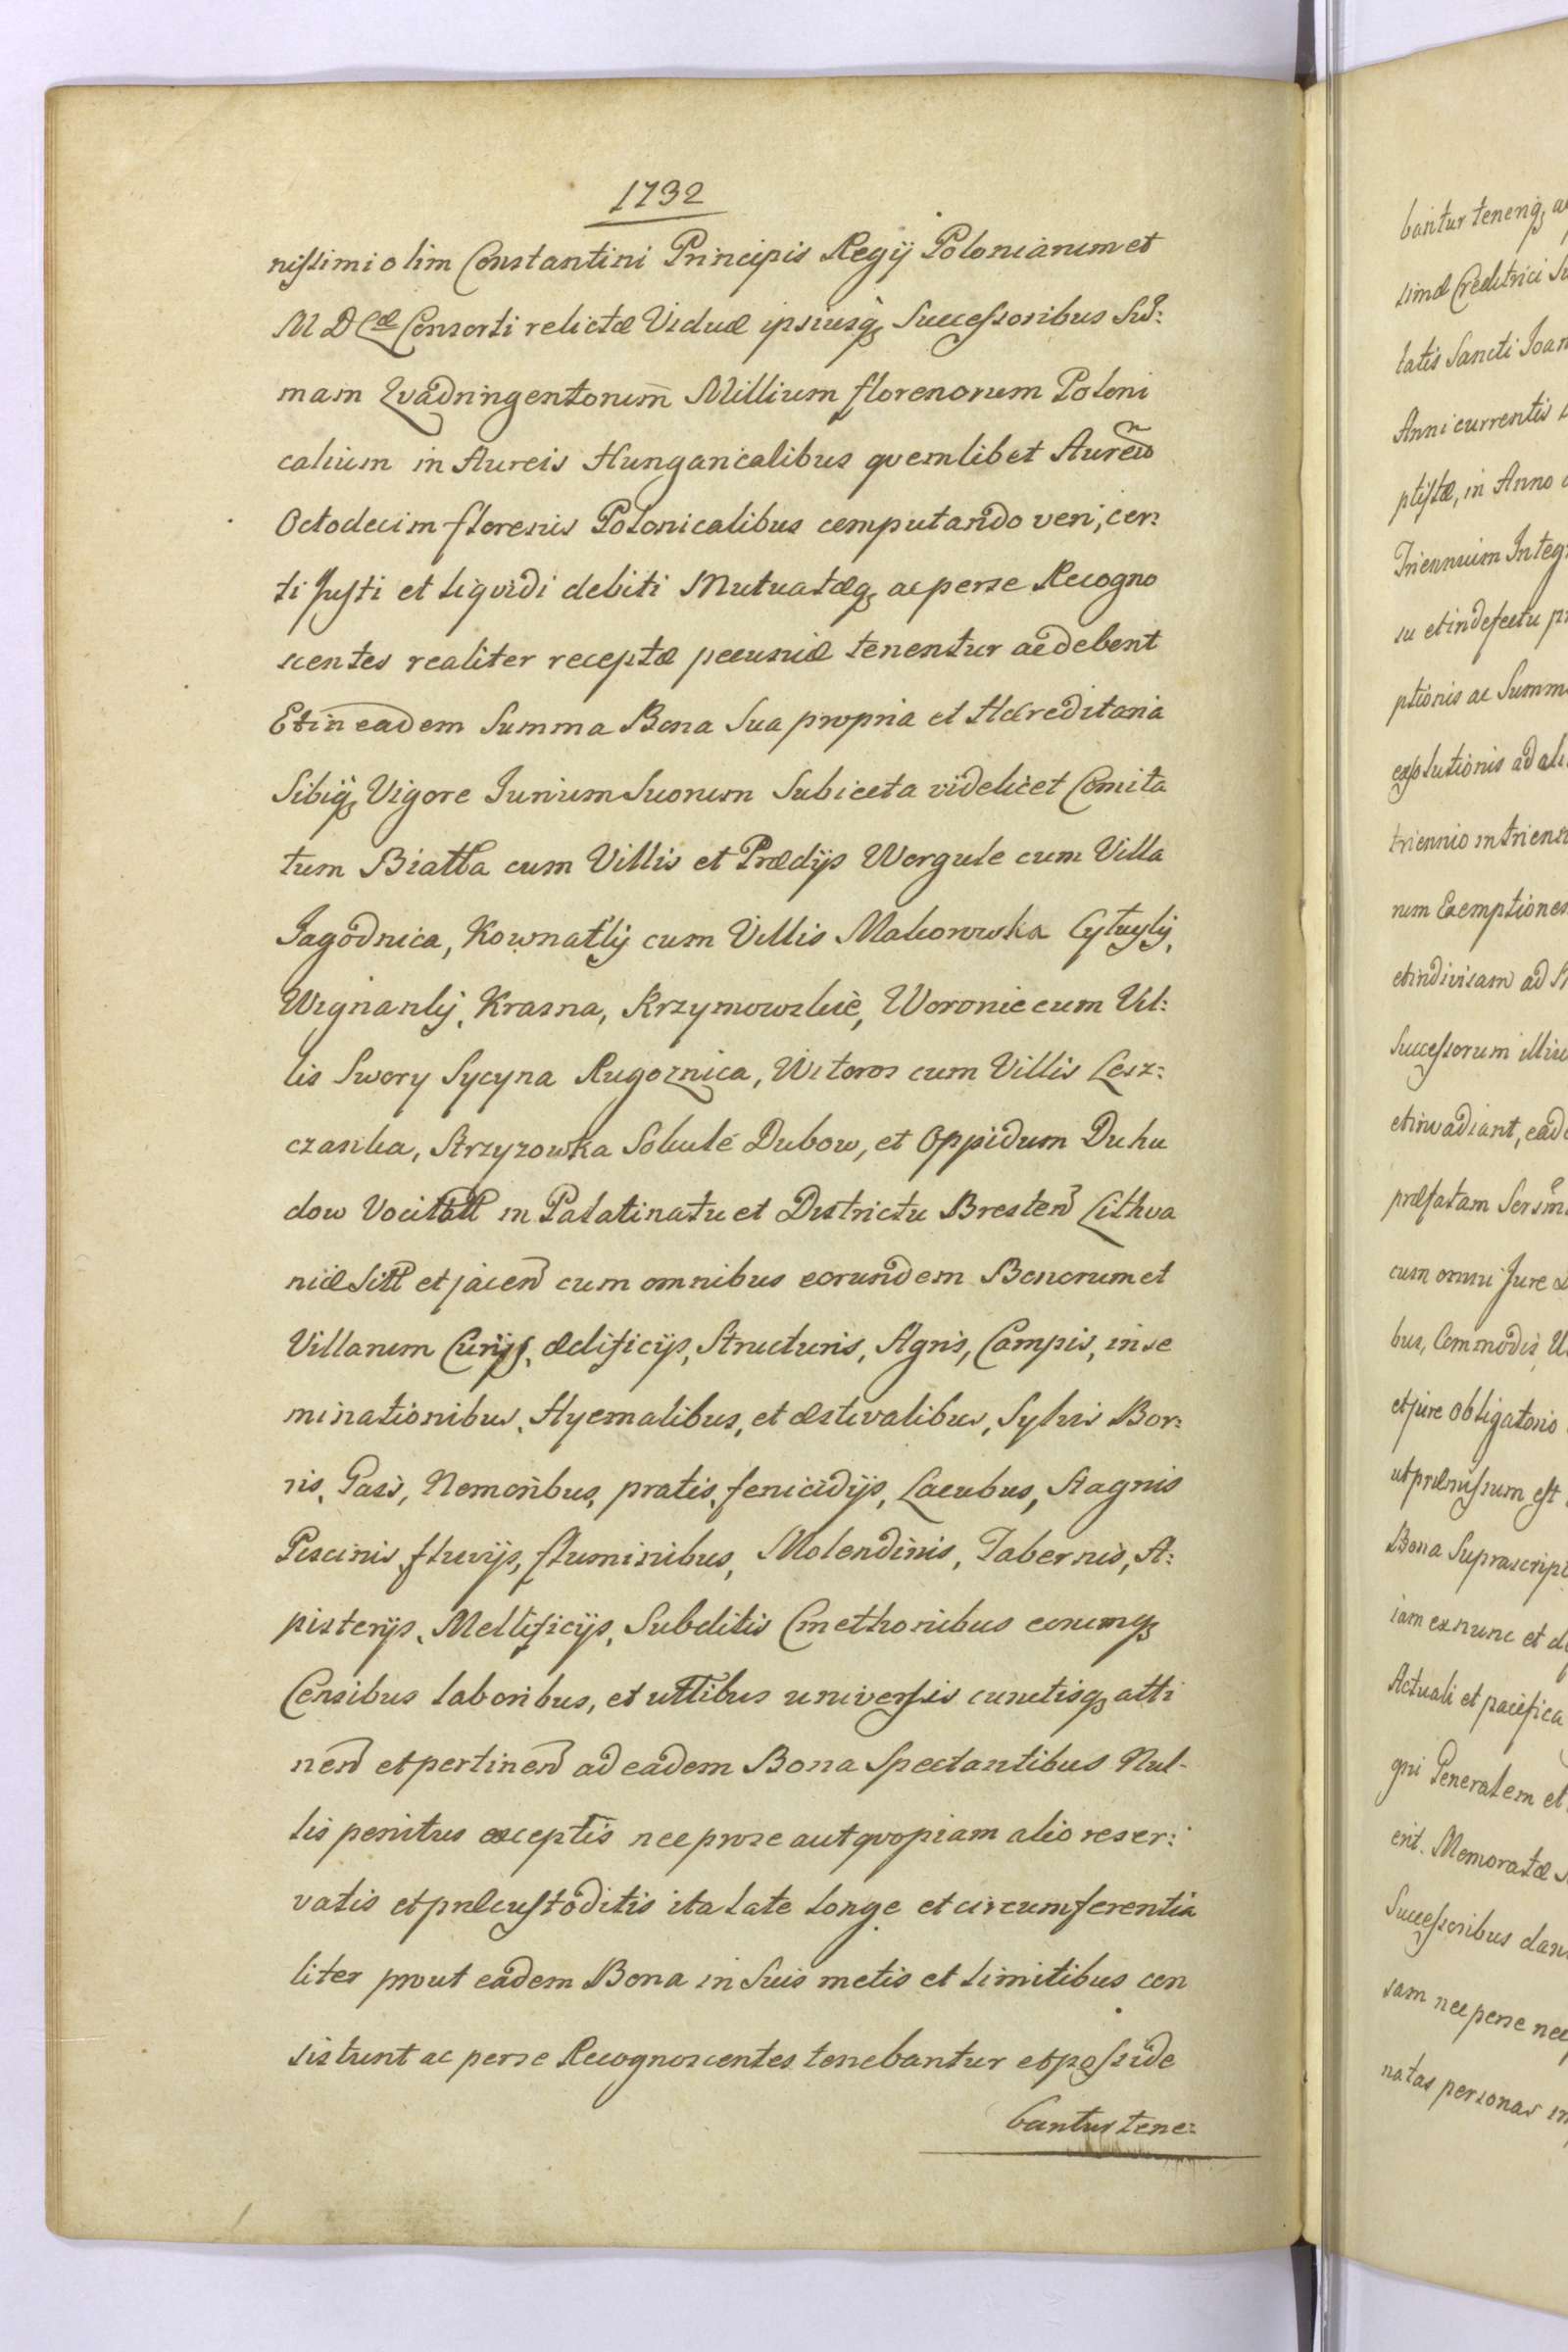 1732
nissimi olim Constantini Principis Regij Poloniarum et
M D Cæ Consorti relictæ Viduæ ipsiusq, Successoribus Su:
mam Qvadringentorum Millium florenorum Poloni
calium in Aureis Hungaricalibus qvemlibet Aureũ
Octodecim florenis Polonicalibus computando veri, cer:
ti Justi et liqvidi debiti Mutuatæq, ac per se Recogno
scentes realiter receptæ pecuniæ tenentur ac debent
Et in eadem Summa Bona Sua propria et Hæreditaria
Sibiq, Vigore Jurium Suorum Subiecta videlicet Comita
tum Biatta cum Villis et Prædijs Worgule cum Villa
Jagodnica, Kownatky cum Villis Makorowska Cytuyly,
Wignanky, Krasna, Krzymowskie, Woronie cum Vil:
lis Swory Sycyna Rugoznica, Witoroz cum Villis Lesz:
czanka, Strzyzowka Sokulé Dubow, et Oppidum Duku
dow Vocitatt in Palatinatu et Districtu Bresten Lithva
niæ Sitt et jacen cum omnibus eorundem Bonorum et
Villarum Curijs, ædificijs, Structuris, Agris, Campis, inse
minationibus, Hyemalibus, et æstivalibus, Sylvis Bor:
ris, Gais, Nemoribus, pratis, fenicidijs, Lacubus, Stagnis
Piscinis fluvijs, fluminibus, Molendinis, Tabernis, A:
pisterijs, Mellificijs, Subditis Cmethonibus eorumq,
Censibus laboribus, et uttibus universis cunctisq, atti
nen et pertinen ad eadem Bona Spectantibus Nul-
lis penitus exceptis nec pro se aut qvopiam alio reser:
vatis et præcustoditis ita late longe et circumferentia
liter prout eadem Bona in Suis metis et limitibus con
sistunt ac per se Recognoscentes tenebantur et posside
bantur tene:
bantur teneriq, a
simæ Creditrici Su
tatis Sancti Joan
Anni currentis
ptistæ, in Anno
Triennium Integ
su et in defectu pr
ptionis ac Summ
exsolutionis ad ali
triennio in trienn
rum Exemptiones
et indivisam ad
Successorum illiu
et invadiant, ead
præfatam Sersm
cum omni Jure
bus, Commodis, U
et jure Obligatorio
ut præmissum est
Bona Suprascrip
iam ex nunc et d
Actuali et pacifica
gni Generalem et
erit. Memoratæ
Successoribus dan
sam nec per se nec
natas personas in